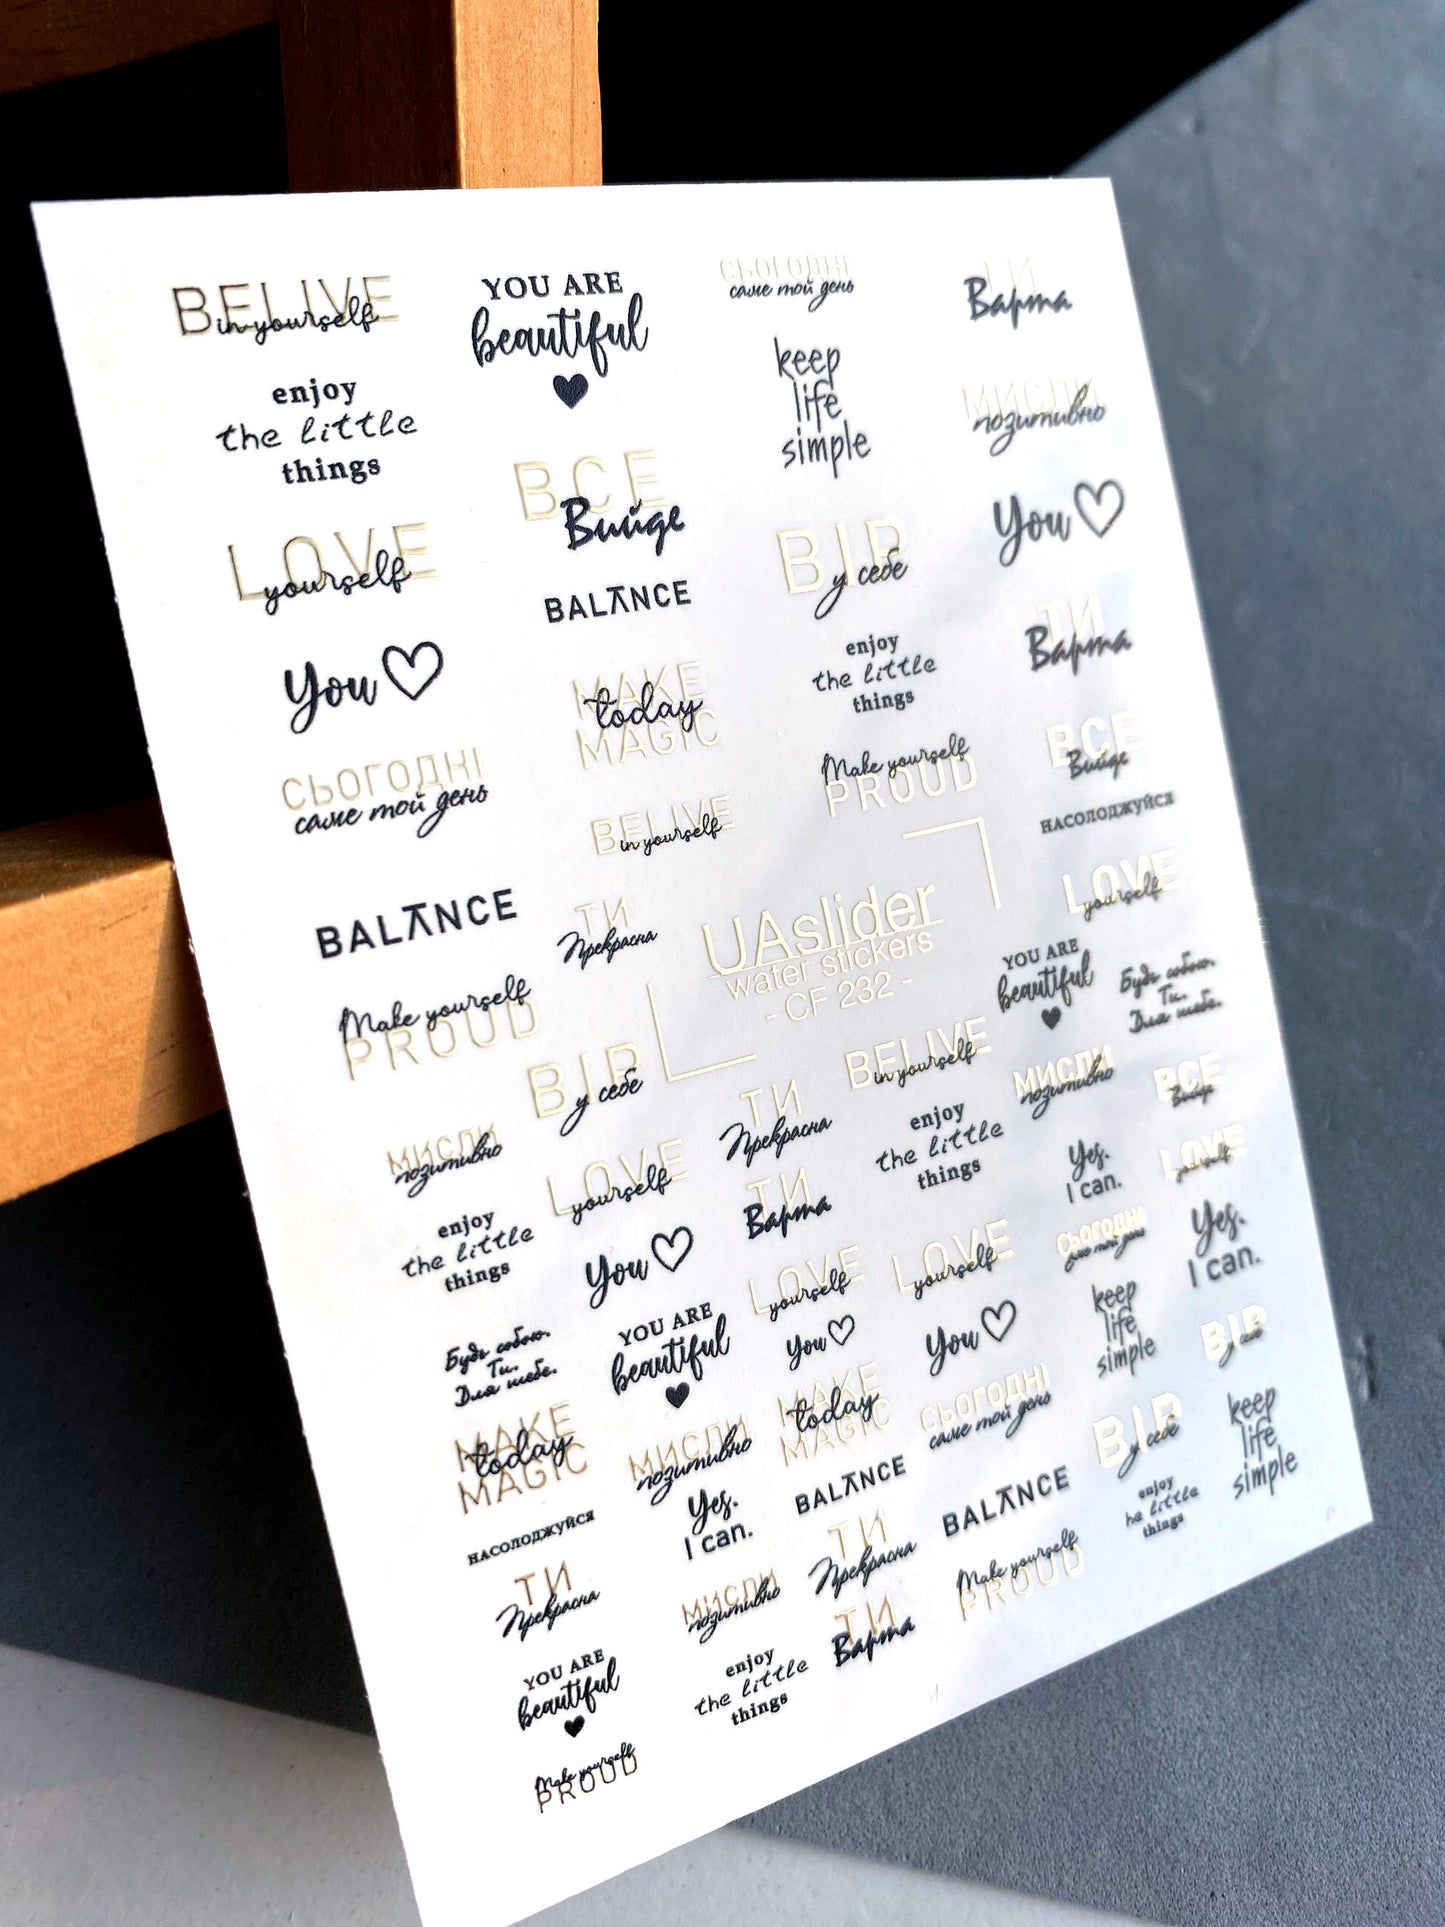 BELIVE
in yourself
YOU ARE
beautiful
СЬОГОДНІ
саме той день
ТИ
Варта
enjoy
the little
things
keep
life
simple
МИСЛИ
позитивно
LOVE
yourself
ВСЕ
Вийде
ВІР
у себе
You
BALANCE
You
MAKE
today
MAGIC
enjoy
the little
things
ТИ
Варта
СЬОГОДНІ
саме той день
BELIVE
in yourself
Make yourself
PROUD
ВСЕ
Вийде
НАСОЛОДЖУЙСЯ
BALANCE
ТИ
Прекрасна
UAslider
water stickers
- CF 232 -
LOVE
yourself
Make yourself
PROUD
ВІР
у себе
YOU ARE
beautiful
Будь собою.
Ти.
Для тебе.
МИСЛИ
позитивно
LOVE
yourself
ТИ
Прекрасна
BELIVE
in yourself
МИСЛИ
позитивно
ВСЕ
Вийде
enjoy
the little
things
You
ТИ
Варта
enjoy
the little
things
Yes.
I can.
LOVE
yourself
Будь собою.
Ти.
Для тебе.
YOU ARE
beautiful
LOVE
yourself
LOVE
yourself
СЬОГОДНІ
саме той день
Yes.
I can.
MAKE
today
MAGIC
You
You
keep
life
simple
ВІР
у себе
МИСЛИ
позитивно
MAKE
today
MAGIC
СЬОГОДНІ
саме той день
ВІР
у себе
keep
life
simple
НАСОЛОДЖУЙСЯ
Yes.
I can.
BALANCE
BALANCE
enjoy
he little
things
ТИ
Прекрасна
МИСЛИ
позитивно
ТИ
Прекрасна
Make yourself
PROUD
YOU ARE
beautiful
enjoy
the little
things
ТИ
Варта
Make yourself
PROUD